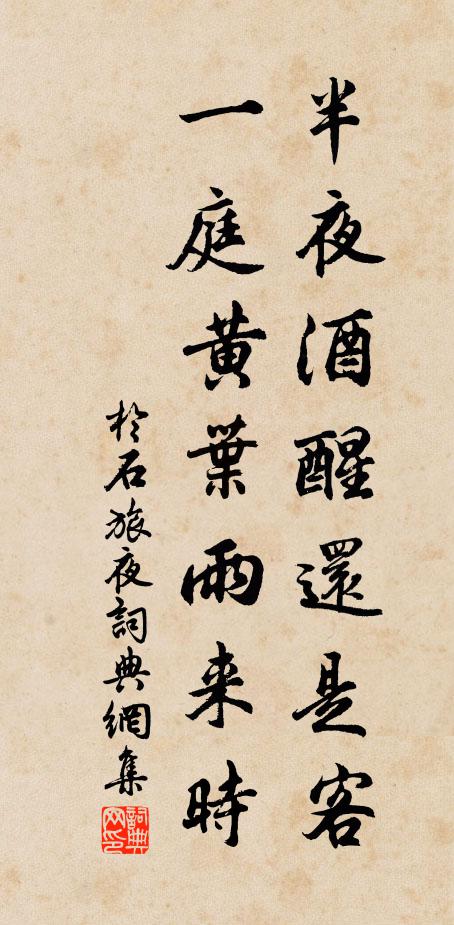 半夜酒醒還是客
一庭黄葉雨来時
於石旅夜詞典網集
詞典网印